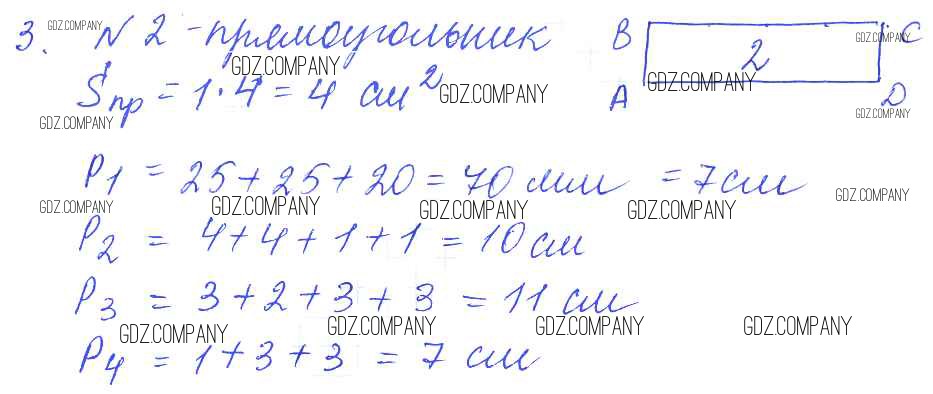 3. GDZ.COMPANY N 2 - прямоугольник B GDZ.COMPANY C
GDZ.COMPANY 2
Sпр = 1 · 4 = 4 см² GDZ.COMPANY A GDZ.COMPANY D
GDZ.COMPANY GDZ.COMPANY
P1 = 25 + 25 + 20 = 70 мм = 7 см
GDZ.COMPANY GDZ.COMPANY GDZ.COMPANY GDZ.COMPANY GDZ.COMPANY
P2 = 4 + 4 + 1 + 1 = 10 см
P3 = 3 + 2 + 3 + 3 = 11 см
GDZ.COMPANY GDZ.COMPANY GDZ.COMPANY GDZ.COMPANY
P4 = 1 + 3 + 3 = 7 см